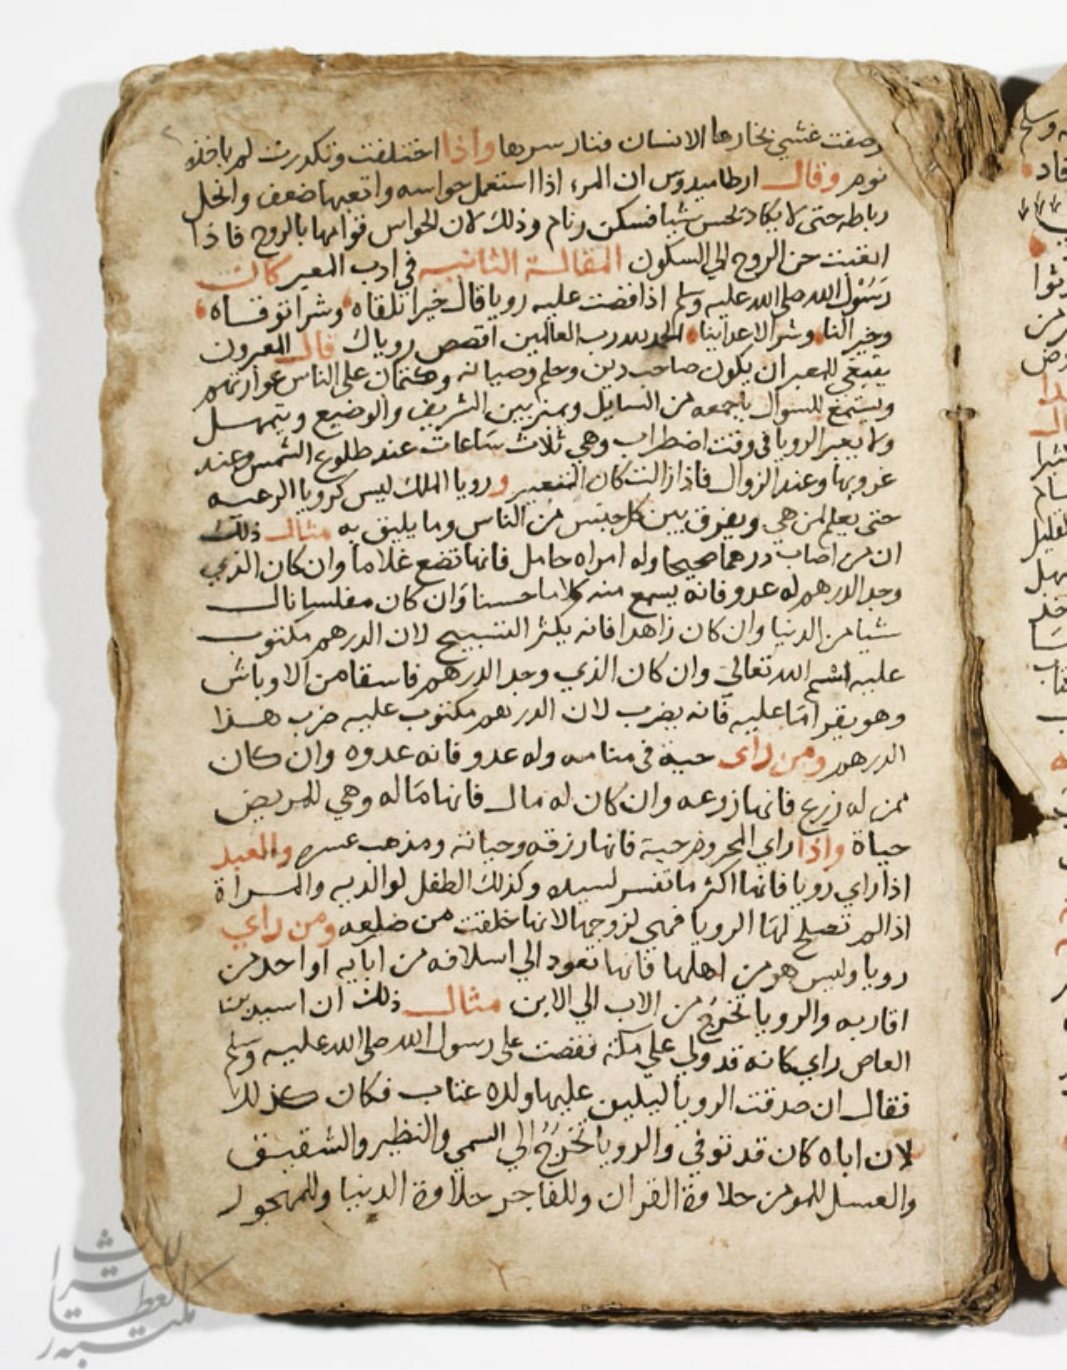 وصفت غشي بخارها الانسان فنار سرها واذا اختلفت وتكدرت لم ياخذه
نوم وقال ارطاميدوس ان المرء اذا استعمل حواسه واتعبها ضعف وانحل
رباطه حتى لا يكاد يحس شيا فسكن ونام وذلك لان الحواس قوامها بالروح فاذا
الروح الي السكون المقالة الثانيه في ادب المعبر كان
رسول الله صلى الله عليه وسلم اذا قصت عليه رويا قال خيرا تلقاه وشرا توقاه
وخير لنا وشر لاعداينا الحمد لله رب العالمين اقصص روياك قال المعبرون
ينبغي للمعبر ان يكون صاحب دين وحلم وصيانه وكتمان على الناس عوارتهم
ويستمع للسوال باجمعه من السايل ويميز بين الشريف والوضيع ويتمهل
ولا يعبر الرويا في وقت اضطراب وهي ثلاث ساعات عند طلوع الشمس وعند
غروبها وعند الزوال فاذا زالت كان التعبير ورويا الملك ليس كرويا الرعيه
حتى يعلم لمن هي ويفرق بين كل جنس من الناس وما يليق به مثال ذلك
ان من اصاب درهما صحيحا وله امراه حامل فانها تضع غلاما وان كان الذي
وجد الدرهم له عدو فانه يسمع منه كلاما حسنا وان كان مفلسا نال
شيا من الدنيا وان كان زاهدا فانه يكثر التسبيح لان الدرهم مكتوب
عليه اسم الله تعالى وان كان الذي وجد الدرهم فاسقا من الاوباش
وهو يقرا ما عليه فانه يضرب لان الدرهم مكتوب عليه ضرب هذا
الدرهم ومن راى حية في منامه وله عدو فانه عدوه وان كان
ممن له زرع فانها زرعه وان كان له مال فانها ماله وهي للمريض
حياة واذا راي المحروم حية فانها رزقه وحياته ومذهب عسره والعبد
اذا راي رويا فانها اكثر ما تفسر لسيده وكذلك الطفل لوالديه والمراة
اذا لم تصلح لها الرويا فهي لزوجها لانها خلقت من ضلعه ومن راي
رويا وليس هو من اهلها فانها تعود الي اسلافه من ابايه او احد من
اقاربه والرويا تخرج من الاب الي الابن مثال ذلك ان اسيد بن
العاص راي كانه قد ولي علي مكة فقصت على رسول الله صلى الله عليه وسلم
فقال ان صدقت الرويا ليلين عليها ولده عتاب فكان كذلك
لان اباه كان قد توفي والرويا تخرج الي السمي والنظير والشقيق
والعسل للمومن حلاوة القران وللفاجر حلاوة الدنيا وللمهجور